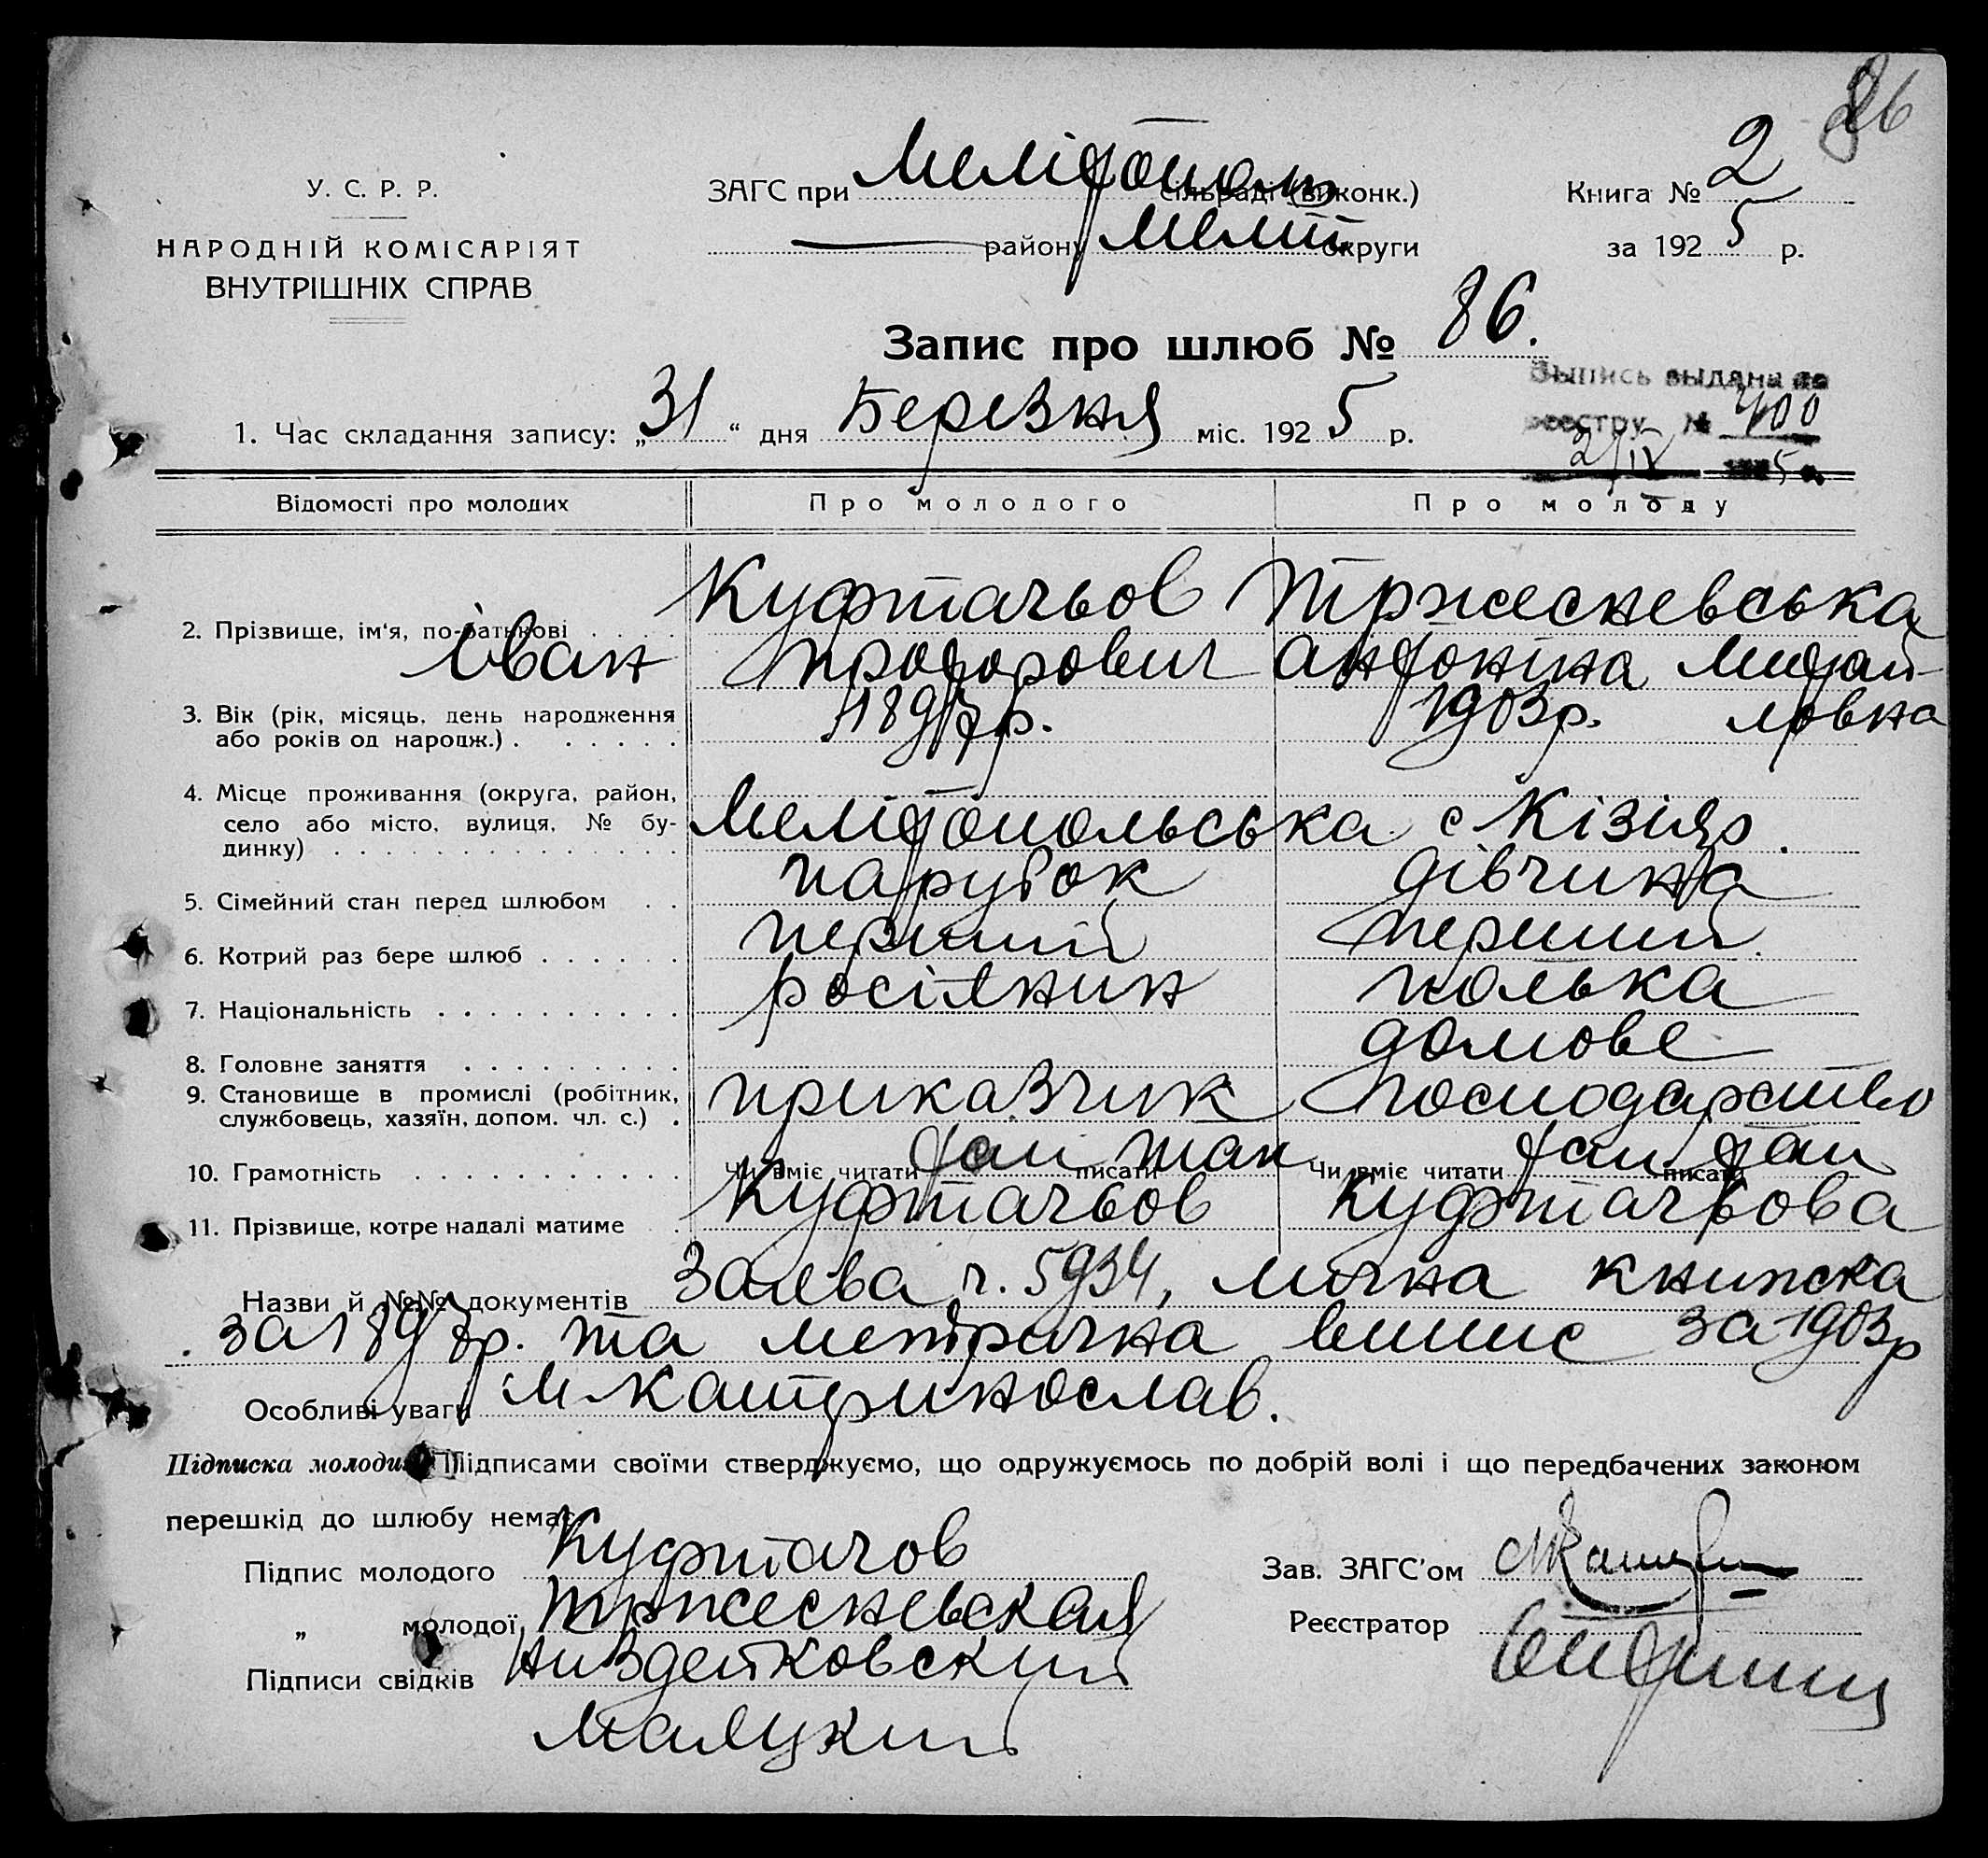 86
У. С. Р. Р.
НАРОДНІЙ КОМІСАРІЯТ
ВНУТРІШНІХ СПРАВ
ЗАГС при Мелітополь сільраді (виконк.)
району Меліт округи
Книга № 2
за 1925 р.
Запис про шлюб № 86.
Выпись выдана по
реестру № 400
2/IV 1925 г.
1. Час складання запису: „31“ дня Березня міс. 1925 р.
Відомості про молодих
Про молодого
Про молоду
2. Прізвище, ім'я, по-батькові
Куфтачьов Іван Прохорович
Тржесневська Антоніна Михайловна
3. Вік (рік, місяць, день народження
або років од народж.)
1897р.
1903р.
4. Місце проживання (округа, район,
село або місто, вулиця, № бу-
динку)
Мелітопольська с Кізіяр.
5. Сімейний стан перед шлюбом
парубок
дівчина
6. Котрий раз бере шлюб
перший
перший
7. Національність
росіянин
полька
8. Головне заняття
9. Становище в промислі (робітник,
службовець, хазяїн, допом. чл. с.)
приказчик
домове
господарство
10. Грамотність
Чи вміє читати так писати так
Чи вміє читати так писати так
11. Прізвище, котре надалі матиме
Куфтачьов
Куфтачьова
Назви й №№ документів Заява ч. 5934, лична книжка
за 1897р. та метрична випис за 1903р
Особливі уваги м Катеринослав.
Підписка молодих Підписами своїми стверджуємо, що одружуємось по добрій волі і що передбачених законом
перешкід до шлюбу немає
Підпис молодого Куфтачов
„ молодої Тржесневская
Підписи свідків
Малукий
Зав. ЗАГС'ом
Реєстратор